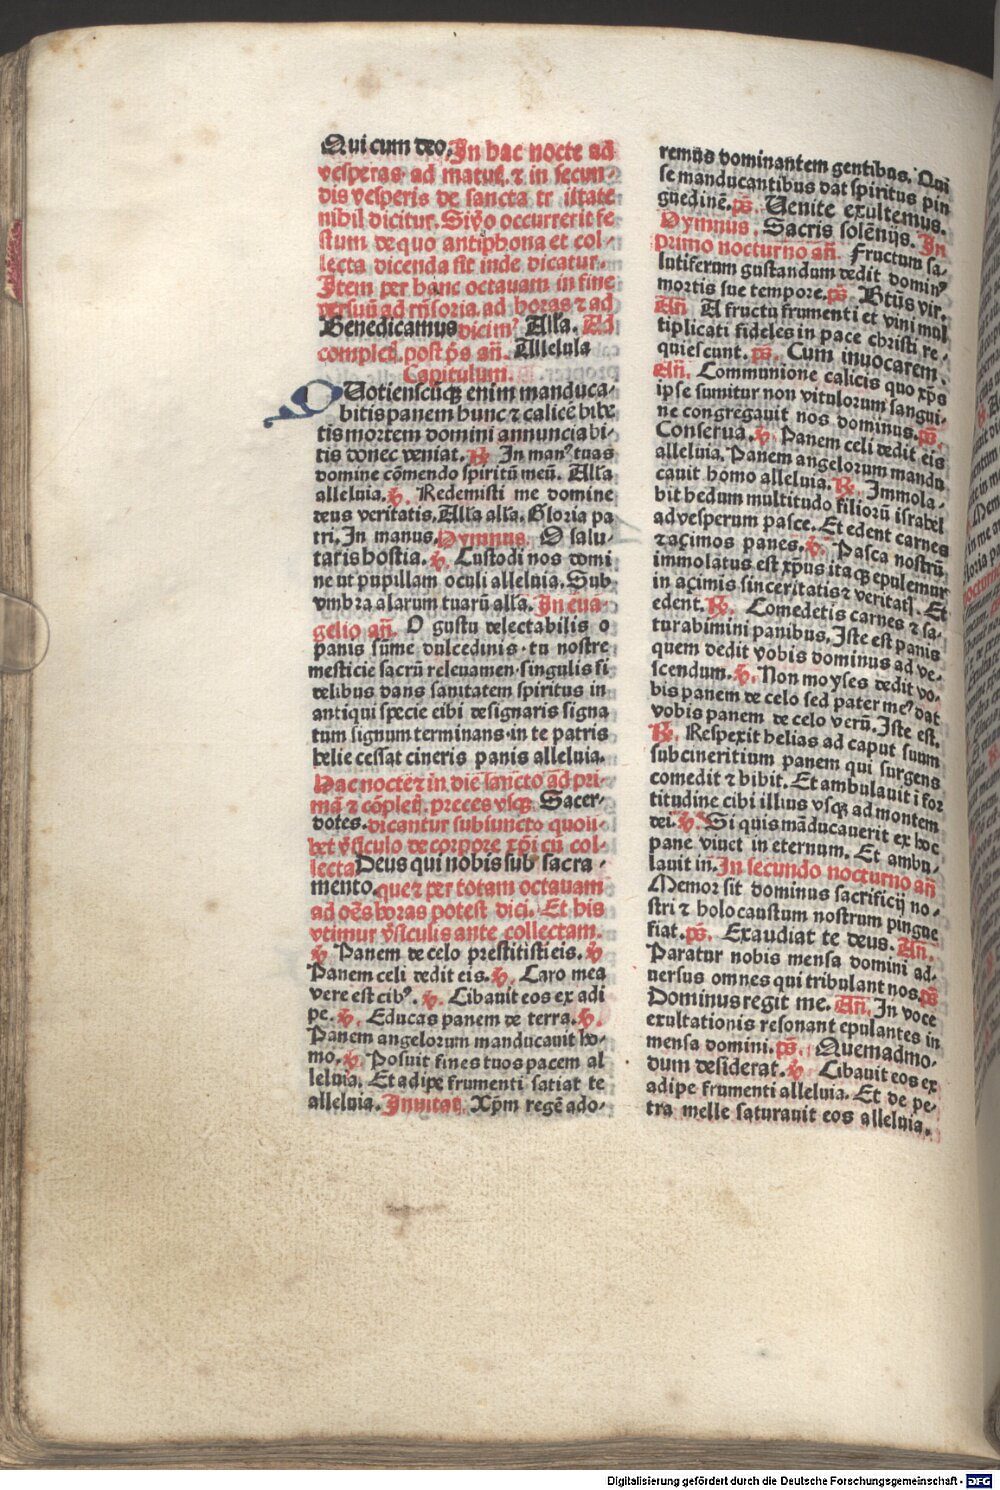 Qui cum deo. In hac nocte ad
vesperas ad matuť. ⁊ in secun-
dis vesperis de sancta tr initate
nihil dicitur. Si vo occurrerit fe
stum de quo antiphona et col-
lecta dicenda sit inde dicatur.
Item per hanc octauam in fine
versuū ad rn̄soria. ad horas ⁊ ad
Benedicamus dicim⁹ Alla. Ad
completꝭ. post p̄s an̄. Alleluia
Capitulum.
QUotienscūqꝫ enim manduca-
bitis panem hunc ⁊ calicē bibe
tis mortem domini annunciabi-
tis donec veniat. ℟ In man⁹ tuas
domine cōmendo spiritū meū. Alla
alleluia. ℣. Redemisti me domine
deus veritatis. Alla alla. Gloria pa
tri. In manus. Hymnus. O salu-
taris hostia. ℣. Custodi nos domi
ne ut pupillam oculi alleluia. Sub
vmbra alarum tuarū alla. In eua-
gelio an̄. O gustu delectabilis o
panis sūme dulcedinis · tu nostre
mesticie sacrū releuamen · singulis fi
delibus dans sanitatem spiritus in
antiqui specie cibi designaris signa
tum signum terminans · in te patris
helie cessat cineris panis alleluia.
Hac nocte ⁊ in die sancto ad pri-
mā ⁊ cōpletꝭ. preces vsqꝫ Sacer-
dotes. dicantur subiuncto quoli-
bet v̄siculo de corpore xp̄i cū col-
lecta Deus qui nobis sub sacra-
mento. que ⁊ per totam octauam
ad oēs horas potest dici. Et his
vtimur v̄siculis ante collectam.
℣ Panem de celo prestitisti eis. ℣
Panem celi dedit eis. ℣. Caro mea
vere est cib⁹. ℣. Cibauit eos ex adi
pe. ℣. Educas panem de terra. ℣.
Panem angelorum manducauit ho-
mo. ℣. Posuit fines tuos pacem al
leluia. Et adipe frumenti satiat te
alleluia. Inuitatꝭ. Xp̄m regē ado-
remus dominantem gentibus. Qui
se manducantibus dat spiritus pin
guedinē. ps̄. Uenite exultemus.
Hymnus. Sacris solēnijs. In
primo nocturno an̄. Fructum sa-
lutiferum gustandum dedit domin⁹
mortis sue tempore. ps̄. Bt̄us vir.
An̄. A fructu frumenti et vini mul
tiplicati fideles in pace christi re-
quiescunt. ps̄. Cum inuocarem.
An̄. Communione calicis quo xp̄s
ipse sumitur non vitulorum sangui-
ne congregauit nos dominus. ps̄.
Conserua. ℣. Panem celi dedit eis
alleluia. Panem angelorum mandu
cauit homo alleluia. ℟. Immola-
bit hedum multitudo filiorū israhel
ad vesperum pasce. Et edent carnes
⁊ azimos panes. ℣. Pasca nostrū
immolatus est xp̄us itaqꝫ epulemur
in azimis sinceritatis ⁊ veritatꝭ. Et
edent. ℟. Comedetis carnes ⁊ sa-
turabimini panibus. Iste est panis
quem dedit vobis dominus ad ve-
scendum. ℣. Non moyses dedit vo-
bis panem de celo sed pater me⁹ dat
vobis panem de celo verū. Iste est.
℟. Respexit helias ad caput suum
subcineritium panem qui surgens
comedit ⁊ bibit. Et ambulauit ī for
titudine cibi illius vsqꝫ ad montem
dei. ℣. Si quis māducauerit ex hoc
pane viuet in eternum. Et ambu-
lauit in̄. In secundo nocturno an̄
Memor sit dominus sacrificij no-
stri ⁊ holocaustum nostrum pingue
fiat. ps̄. Exaudiat te deus. An̄.
Paratur nobis mensa domini ad-
uersus omnes qui tribulant nos. ps̄
Dominus regit me. An̄. In voce
exultationis resonant epulantes in
mensa domini. ps̄. Quemadmo-
dum desiderat. ℣. Cibauit eos ex
adipe frumenti alleluia. Et de pe-
tra melle saturauit eos alleluia.
Digitalisierung gefördert durch die Deutsche Forschungsgemeinschaft - DFG